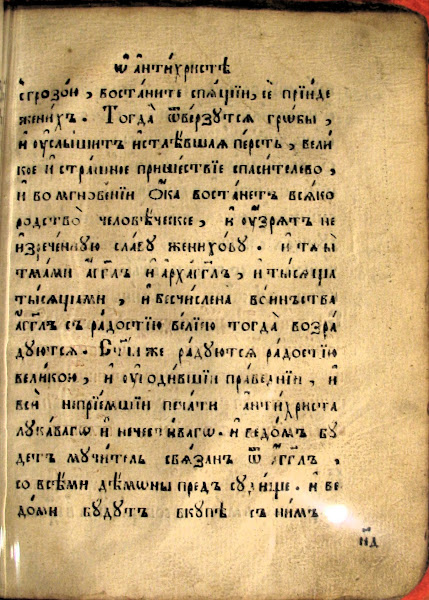 Ѡ҆ а҆нти́христѣ
сгрозо́ю, воста́ните спѧ́щїи, се прїи́де
жени́хъ. Тогда̀ ѿве́рзутсѧ гро́бы,
и҆ оу҆слы́шитъ и҆стлѣ́вшаѧ пе́рсть, вели́
кое и҆ стра́шное прише́ствїе спаси́телево,
и҆ во мгнове́нїи ѻ҆́ка воста́нетъ всѧ́ко
ро́дство человѣ́ческое, и҆ оу҆́зрѧтъ не
и҆зрече́нную сла́ву женихо́ву. и҆ тмы̀
тма́ми а҆́гг҃лъ и҆ а҆рха́гг҃лъ, и҆ ты́сѧща
ты́сѧщами, и҆ безчи́слена во́инъства
а҆́гг҃лъ съ ра́достїю ве́лїю тогда̀ возра́
дуютсѧ. Ст҃і́и же ра́дуютсѧ ра́достїю
вели́кою, и҆ оу҆годи́вшїи пра́ведніи, и҆
всѝ непрїе́мшїи печа́ти а҆нти́христа
лука́вагѡ и҆ нечести́вагѡ. и҆ ведо́мъ бу́
детъ мучи́тель свѧ́занъ ѿ а҆́гг҃лъ,
со всѣ́ми де́мѡны предъ суди́ще. и҆ ве
до́ми бу́дутъ вку́пѣ съ ни́мъ
н҃д